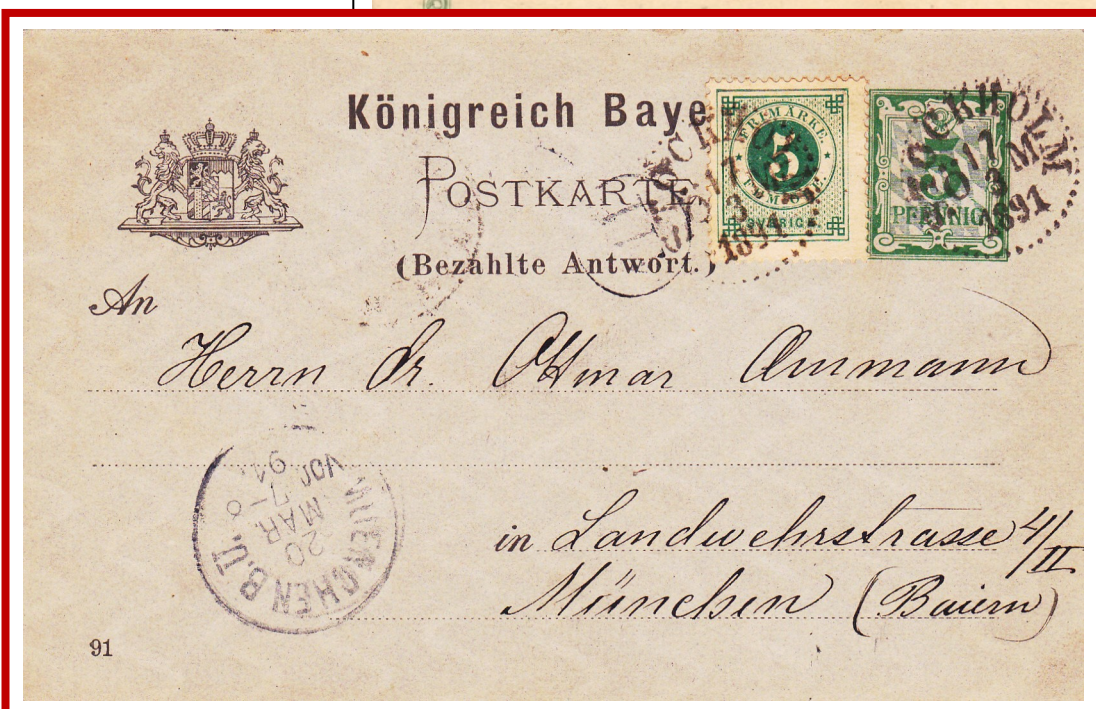 Königreich Baye
POSTKARTE
(Bezahlte Antwort.)
FRIMÄRKE
5
FEM ÖRE
SVERIGE
5
PFENNIG
STOCKHOLM
17 3
1891
STOCKHOLM
17 3
1891
An
Herrn Dr. Ottmar Ammann
in Landwehrstrasse 4/II
München (Baiern)
MUENCHEN B.II.
20
MAR.
7-8
VOR
91
91